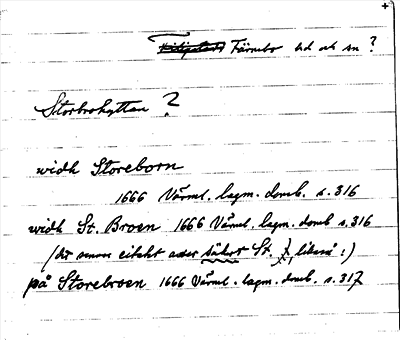 +
Färnebo hd och sn ?
Storbrohyttan ?
widh Storeborn
1666 Värml. lagm. domb. s. 316
widh St. Broen 1666 Värml. lagm. domb s. 316
(här citeht säkert St. likaså :)
på Storebroen 1666 Värml. lagm. domb. s. 317